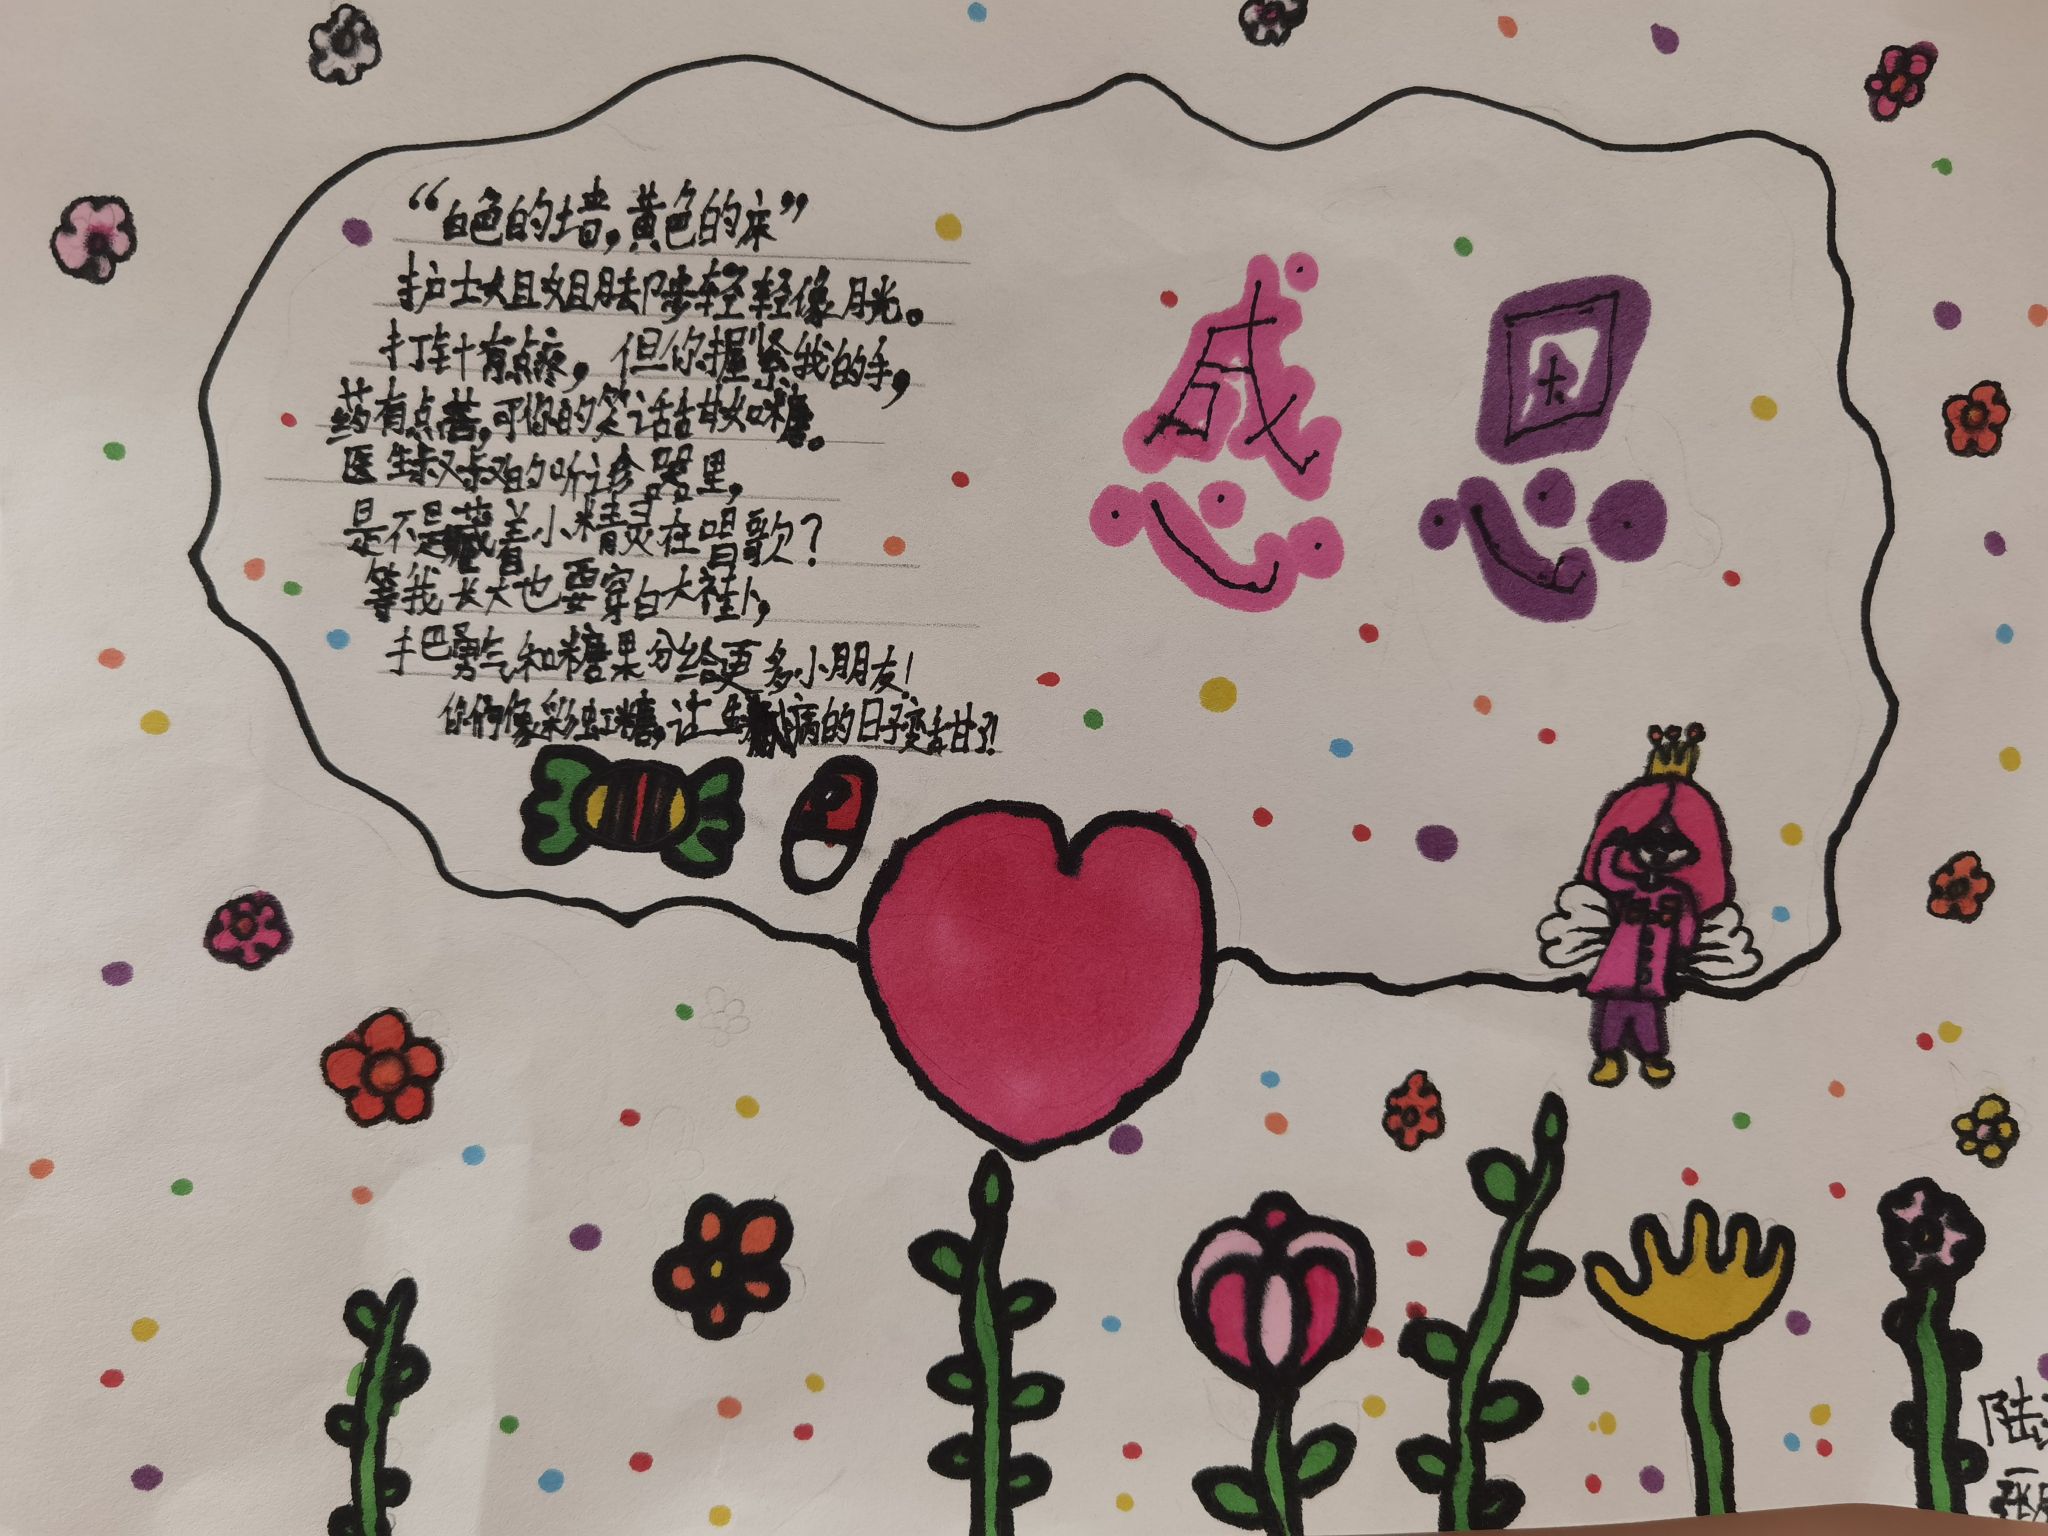 “白色的墙,黄色的床”
护士姐姐脚步轻轻像月光。
打针有点疼,但你握紧我的手,
药有点苦,可你的笑话甜如糖。
医生叔叔的听诊器里,
是不是藏着小精灵在唱歌?
等我长大也要穿白大褂,
手把勇气和糖果分给更多小朋友!
你们像彩虹糖,让生病的日子变甜了!
感恩
陆